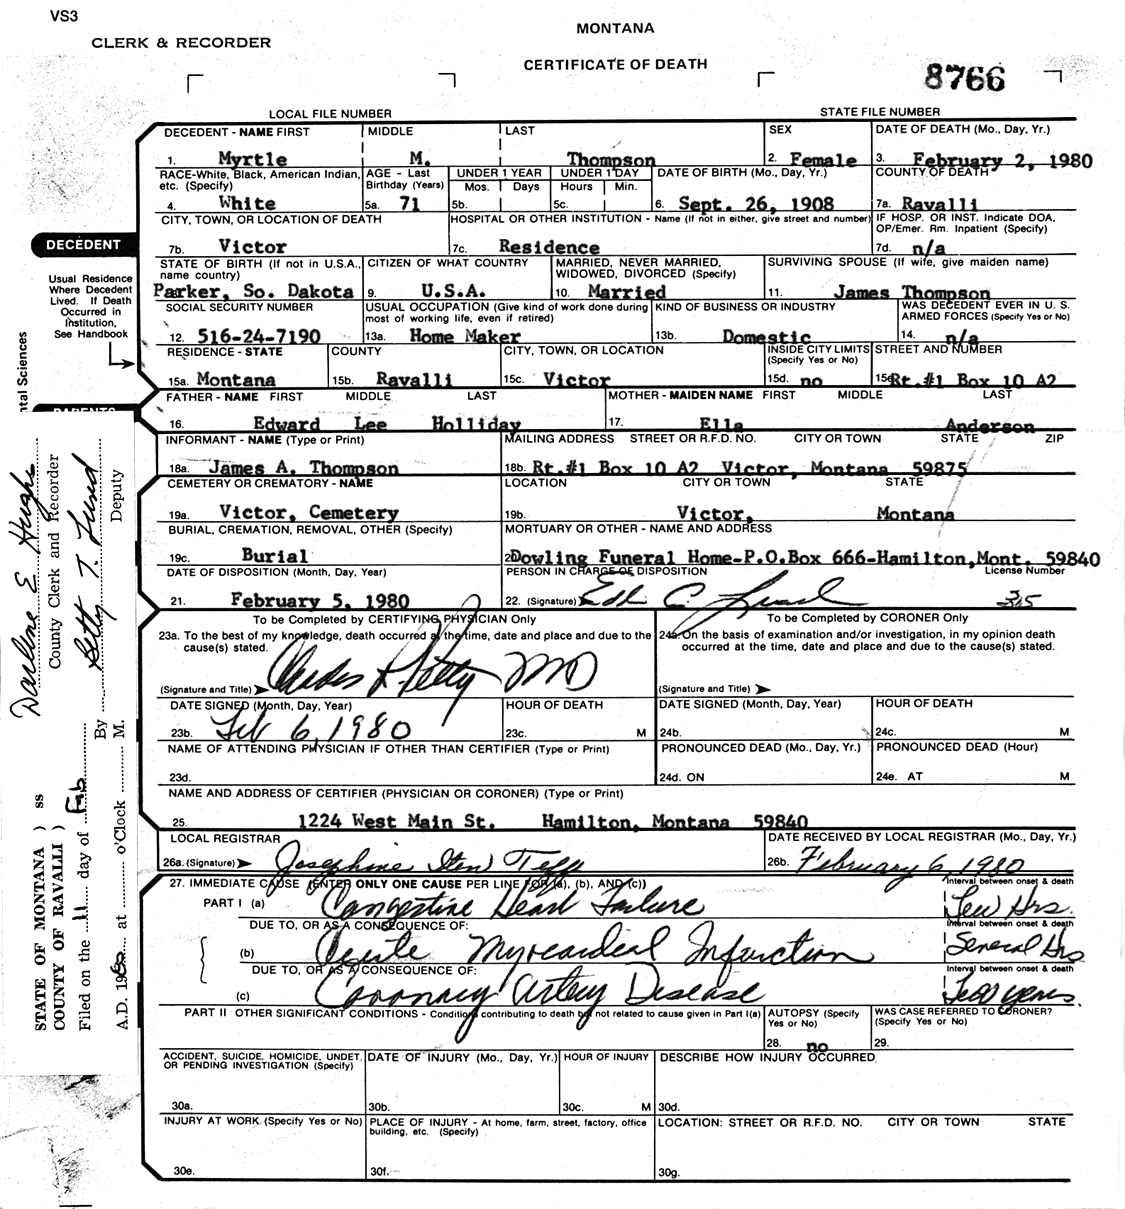 VS3
CLERK & RECORDER
MONTANA
CERTIFICATE OF DEATH
8766
LOCAL FILE NUMBER STATE FILE NUMBER
DECEDENT - NAME FIRST MIDDLE LAST SEX DATE OF DEATH (Mo., Day, Yr.)
1. Myrtle M. Thompson 2. Female 3. February 2, 1980
RACE-White, Black, American Indian, etc. (Specify) AGE - Last Birthday (Years) UNDER 1 YEAR UNDER 1 DAY DATE OF BIRTH (Mo., Day, Yr.) COUNTY OF DEATH
Mos. Days Hours Min.
4. White 5a. 71 5b. 5c. 6. Sept. 26, 1908 7a. Ravalli
CITY, TOWN, OR LOCATION OF DEATH HOSPITAL OR OTHER INSTITUTION - Name (If not in either, give street and number) IF HOSP. OR INST. Indicate DOA, OP/Emer. Rm. Inpatient (Specify)
7b. Victor 7c. Residence 7d. n/a
DECEDENT
Usual Residence
Where Decedent
Lived. If Death
Occurred in
Institution,
See Handbook
STATE OF BIRTH (If not in U.S.A., name country) CITIZEN OF WHAT COUNTRY MARRIED, NEVER MARRIED, WIDOWED, DIVORCED (Specify) SURVIVING SPOUSE (If wife, give maiden name)
Parker, So. Dakota 9. U.S.A. 10. Married 11. James Thompson
SOCIAL SECURITY NUMBER USUAL OCCUPATION (Give kind of work done during most of working life, even if retired) KIND OF BUSINESS OR INDUSTRY WAS DECEDENT EVER IN U. S. ARMED FORCES (Specify Yes or No)
12. 516-24-7190 13a. Home Maker 13b. Domestic 14. n/a
RESIDENCE - STATE COUNTY CITY, TOWN, OR LOCATION INSIDE CITY LIMITS (Specify Yes or No) STREET AND NUMBER
15a. Montana 15b. Ravalli 15c. Victor 15d. no 15e. Rt.#1 Box 10 A2
ntal Sciences
PARENTS
FATHER - NAME FIRST MIDDLE LAST MOTHER - MAIDEN NAME FIRST MIDDLE LAST
16. Edward Lee Holliday 17. Ella Anderson
INFORMANT - NAME (Type or Print) MAILING ADDRESS STREET OR R.F.D. NO. CITY OR TOWN STATE ZIP
18a. James A. Thompson 18b. Rt.#1 Box 10 A2 Victor, Montana 59875
CEMETERY OR CREMATORY - NAME LOCATION CITY OR TOWN STATE
19a. Victor, Cemetery 19b. Victor, Montana
BURIAL, CREMATION, REMOVAL, OTHER (Specify) MORTUARY OR OTHER - NAME AND ADDRESS
19c. Burial 2 Dowling Funeral Home-P.O.Box 666-Hamilton,Mont. 59840
DATE OF DISPOSITION (Month, Day, Year) PERSON IN CHARGE OF DISPOSITION License Number
21. February 5, 1980 22. (Signature) 315
To be Completed by CERTIFYING PHYSICIAN Only To be Completed by CORONER Only
23a. To the best of my knowledge, death occurred at the time, date and place and due to the cause(s) stated.
24a. On the basis of examination and/or investigation, in my opinion death occurred at the time, date and place and due to the cause(s) stated.
(Signature and Title) MD (Signature and Title)
DATE SIGNED (Month, Day, Year) HOUR OF DEATH DATE SIGNED (Month, Day, Year) HOUR OF DEATH
23b. Feb 6, 1980 23c. M 24b. 24c. M
NAME OF ATTENDING PHYSICIAN IF OTHER THAN CERTIFIER (Type or Print) PRONOUNCED DEAD (Mo., Day, Yr.) PRONOUNCED DEAD (Hour)
23d. 24d. ON 24e. AT M
NAME AND ADDRESS OF CERTIFIER (PHYSICIAN OR CORONER) (Type or Print)
25. 1224 West Main St. Hamilton, Montana 59840
LOCAL REGISTRAR DATE RECEIVED BY LOCAL REGISTRAR (Mo., Day, Yr.)
26a. (Signature) Josephine 26b. February 6, 1980
27. IMMEDIATE CAUSE (ENTER ONLY ONE CAUSE PER LINE FOR (a), (b), AND (c)) Interval between onset & death
PART I (a) Congestive Heart Failure Few Hrs.
DUE TO, OR AS A CONSEQUENCE OF: Interval between onset & death
(b) Acute Myocardial Infarction Several Hrs
DUE TO, OR AS A CONSEQUENCE OF: Interval between onset & death
(c) Coronary Artery Disease Few years.
PART II OTHER SIGNIFICANT CONDITIONS - Conditions contributing to death but not related to cause given in Part I(a) AUTOPSY (Specify Yes or No) WAS CASE REFERRED TO CORONER? (Specify Yes or No)
28. no 29.
ACCIDENT, SUICIDE, HOMICIDE, UNDET. OR PENDING INVESTIGATION (Specify) DATE OF INJURY (Mo., Day, Yr.) HOUR OF INJURY DESCRIBE HOW INJURY OCCURRED.
30a. 30b. 30c. M 30d.
INJURY AT WORK (Specify Yes or No) PLACE OF INJURY - At home, farm, street, factory, office building, etc. (Specify) LOCATION: STREET OR R.F.D. NO. CITY OR TOWN STATE
30e. 30f. 30g.
STATE OF MONTANA ) ss
COUNTY OF RAVALLI )
Filed on the 11 day of Feb
A.D. 1980 at o'Clock M.
Darlene E Hughs
County Clerk and Recorder
By Betty T. Lund
Deputy